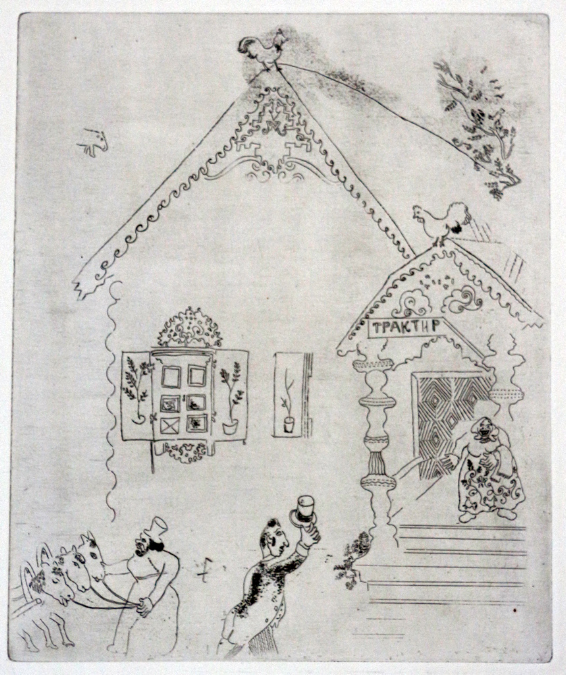 ТРАКТИР